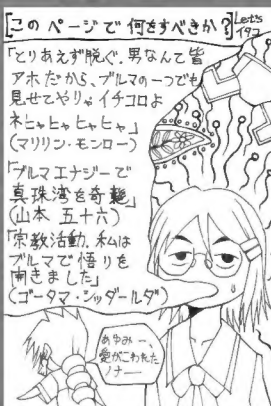 [このページで何をすべきか?]
Let's
イタコ
「とりあえず脱ぐ。男なんて皆
アホだから、ブルマの一つでも
見せてやりゃイチコロよ
ネヒャヒャヒャヒャ」
(マリリン・モンロー)
「ブルマエナジーで
真珠湾を奇襲」
(山本 五十六)
「宗教活動、私は
ブルマで悟りを
開きました」
(ゴータマ・シッダールダ)
あゆみー、
愛がこわれた
ノナー